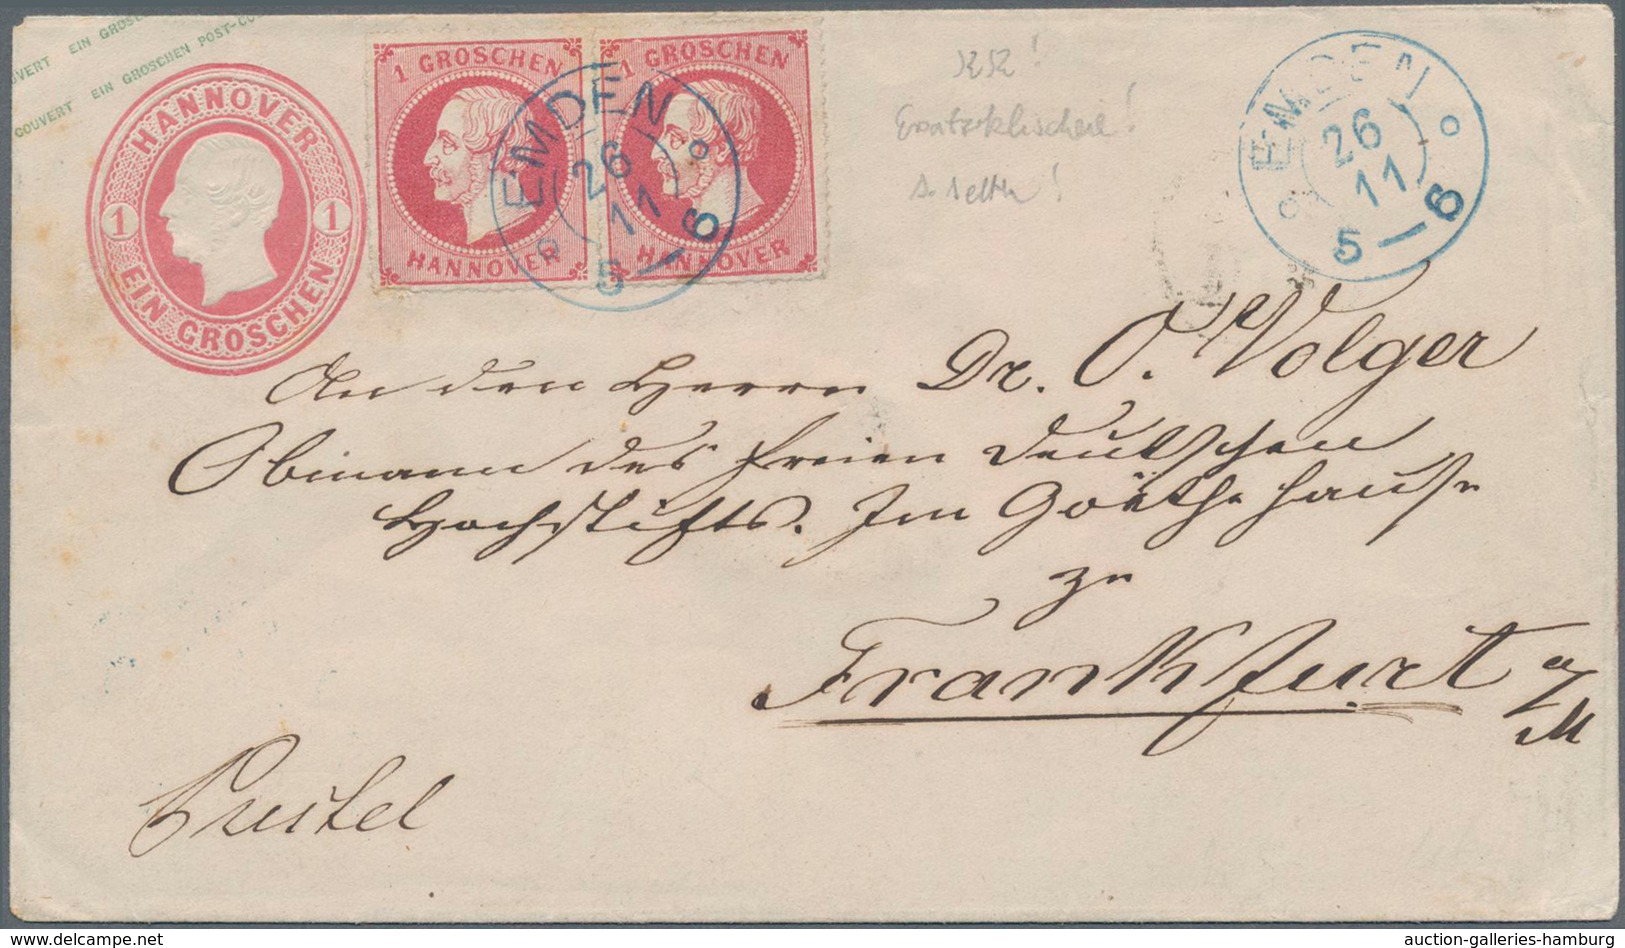 COUVERT EIN GROSCHEN
COUVERT EIN GROSCHEN POST-CO
HANNOVER
1 1
EIN GROSCHEN
1 GROSCHEN
HANNOVER
1 GROSCHEN
HANNOVER
EMDEN
26
11
5-6
EMDEN
26
11
5-6
An den Herrn Dr. O. Volger
Obmann des freien Deutschen
Hochstifts. Im Goethehause
zu
Frankfurt a/M
auction-galleries-hamburg